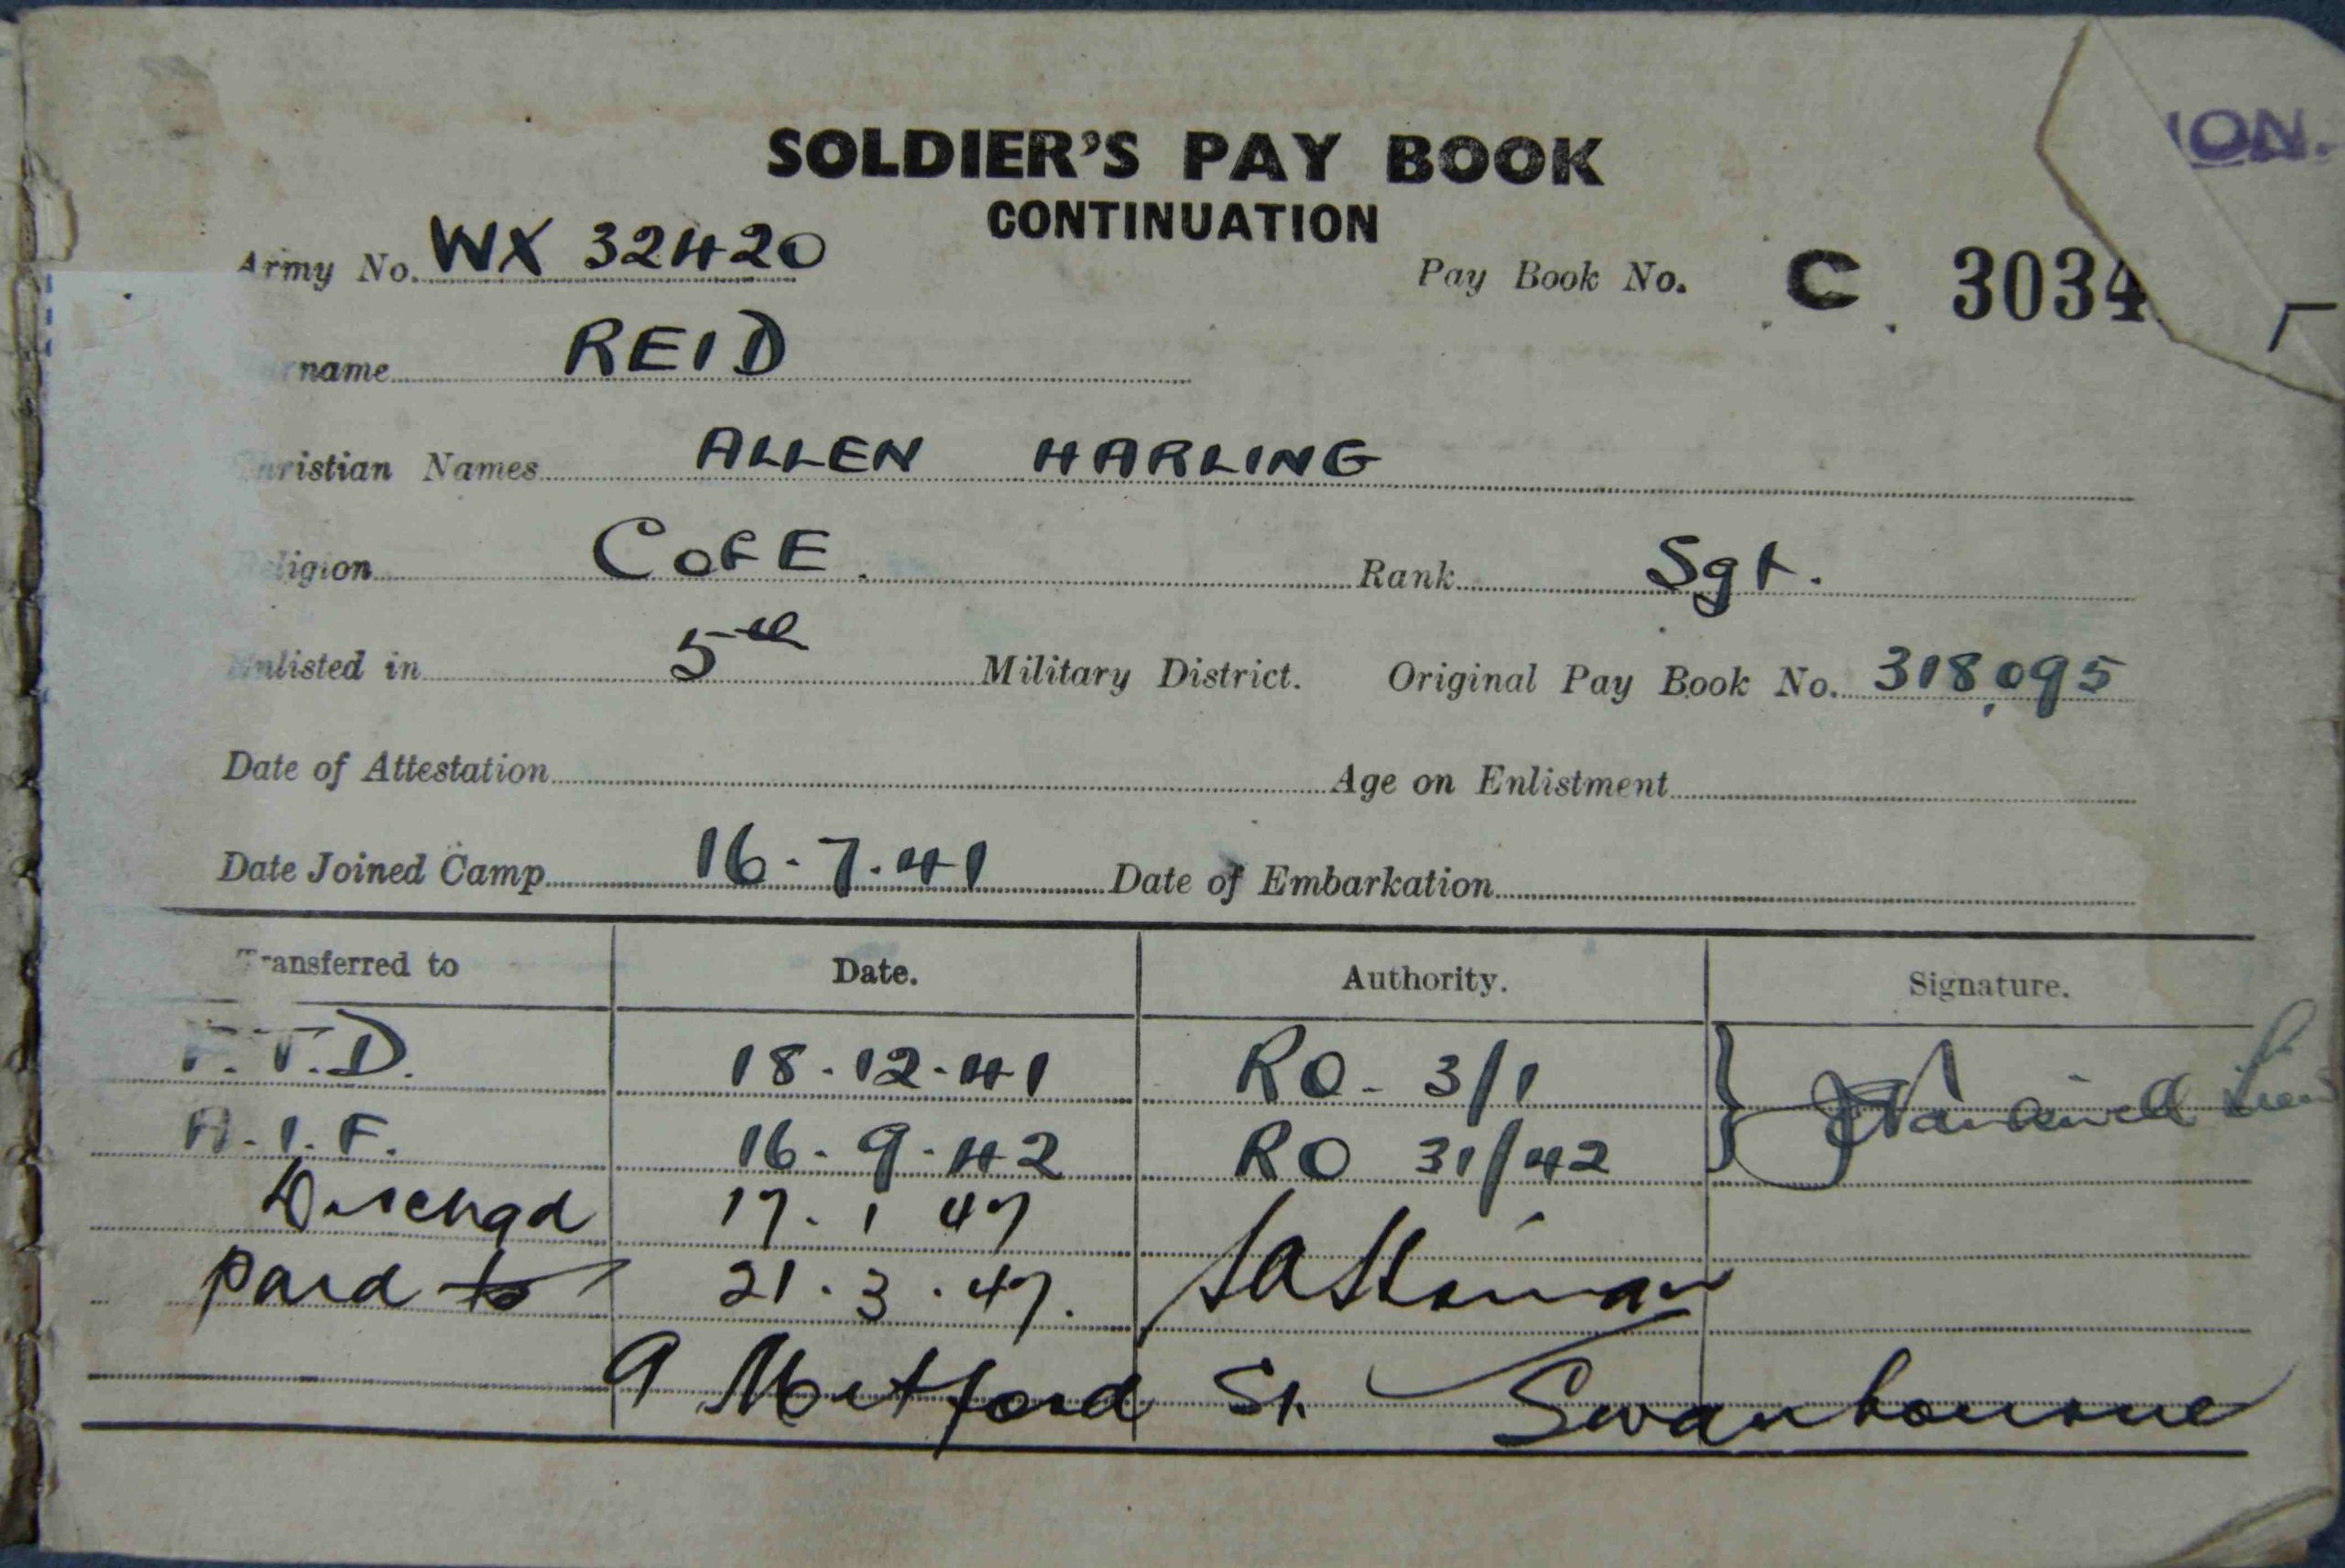 ION.
SOLDIER'S PAY BOOK
CONTINUATION
Army No. WX 32420
Pay Book No. C 3034
Surname REID
Christian Names ALLEN HARLING
Religion C of E. Rank Sgt.
Enlisted in 5th Military District. Original Pay Book No. 318,095
Date of Attestation Age on Enlistment
Date Joined Camp 16.7.41 Date of Embarkation
Transferred to Date. Authority. Signature.
F.T.D. 18.12.41 RO. 3/1
A.I.F. 16.9.42 RO 31/42
Dischgd 17.1 47
paid to 21.3.47.
9 Mitford St. Swanbourne